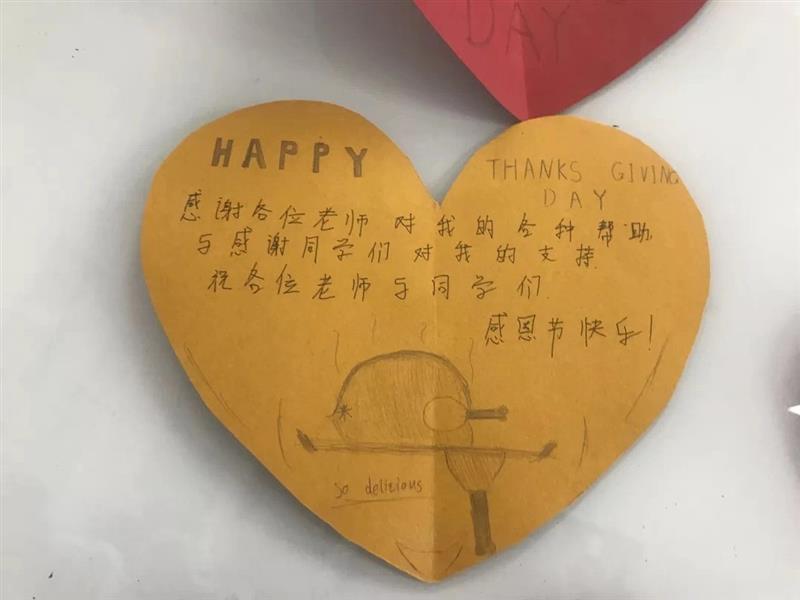 DAY
HAPPY
THANKS GIVING
DAY
感谢各位老师对我的各种帮助
与感谢同学们对我的支持.
祝各位老师与同学们.
感恩节快乐!
so delicious